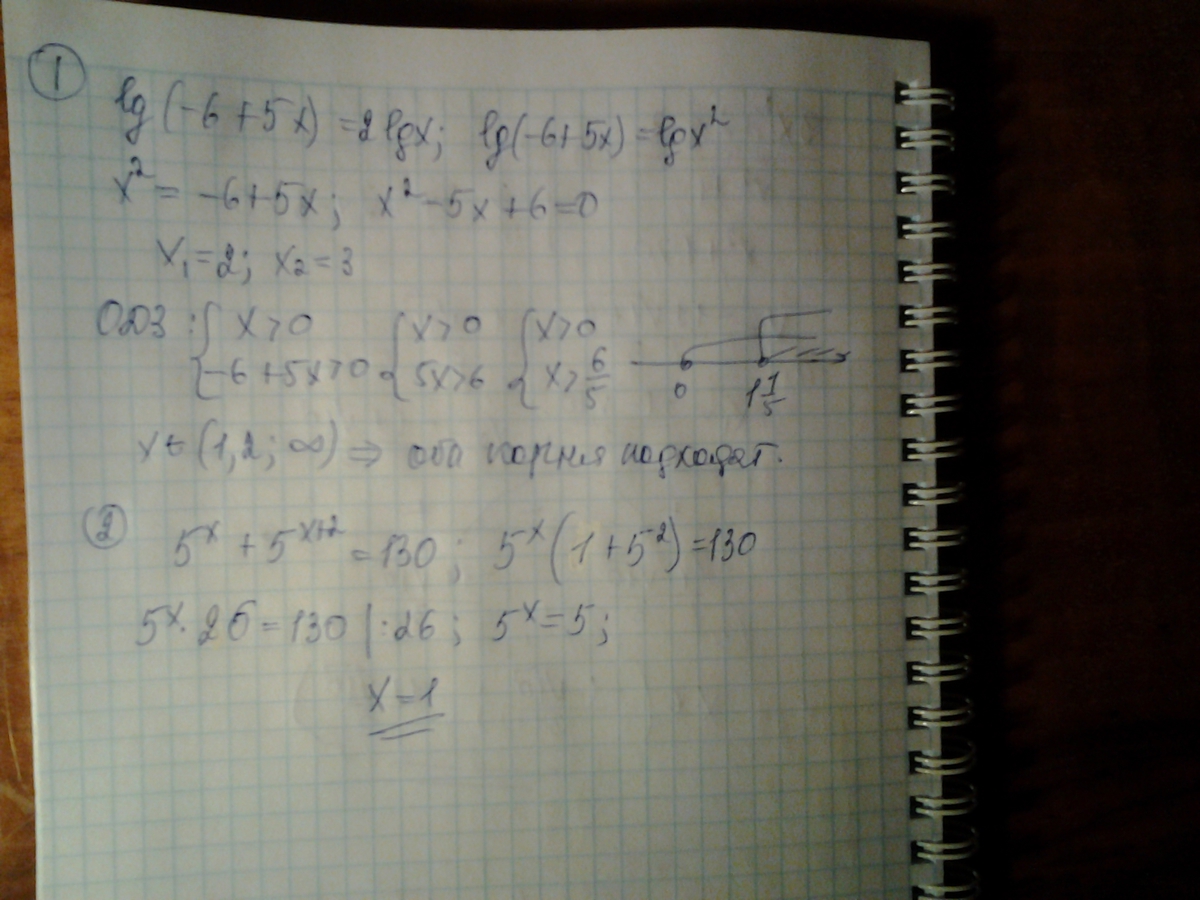 ①
lg(-6+5x)=2lgx; lg(-6+5x)=lgx²
x²=-6+5x; x²-5x+6=0
x₁=2; x₂=3
ОДЗ: { x>0 { x>0 { x>0
-6+5x>0 5x>6 x>6/5 0 1 1/5
x∈(1,2;∞) ⇒ оба корня подходят.
②
5ˣ+5ˣ⁺²=130; 5ˣ(1+5²)=130
5ˣ·26=130 |:26; 5ˣ=5;
x=1